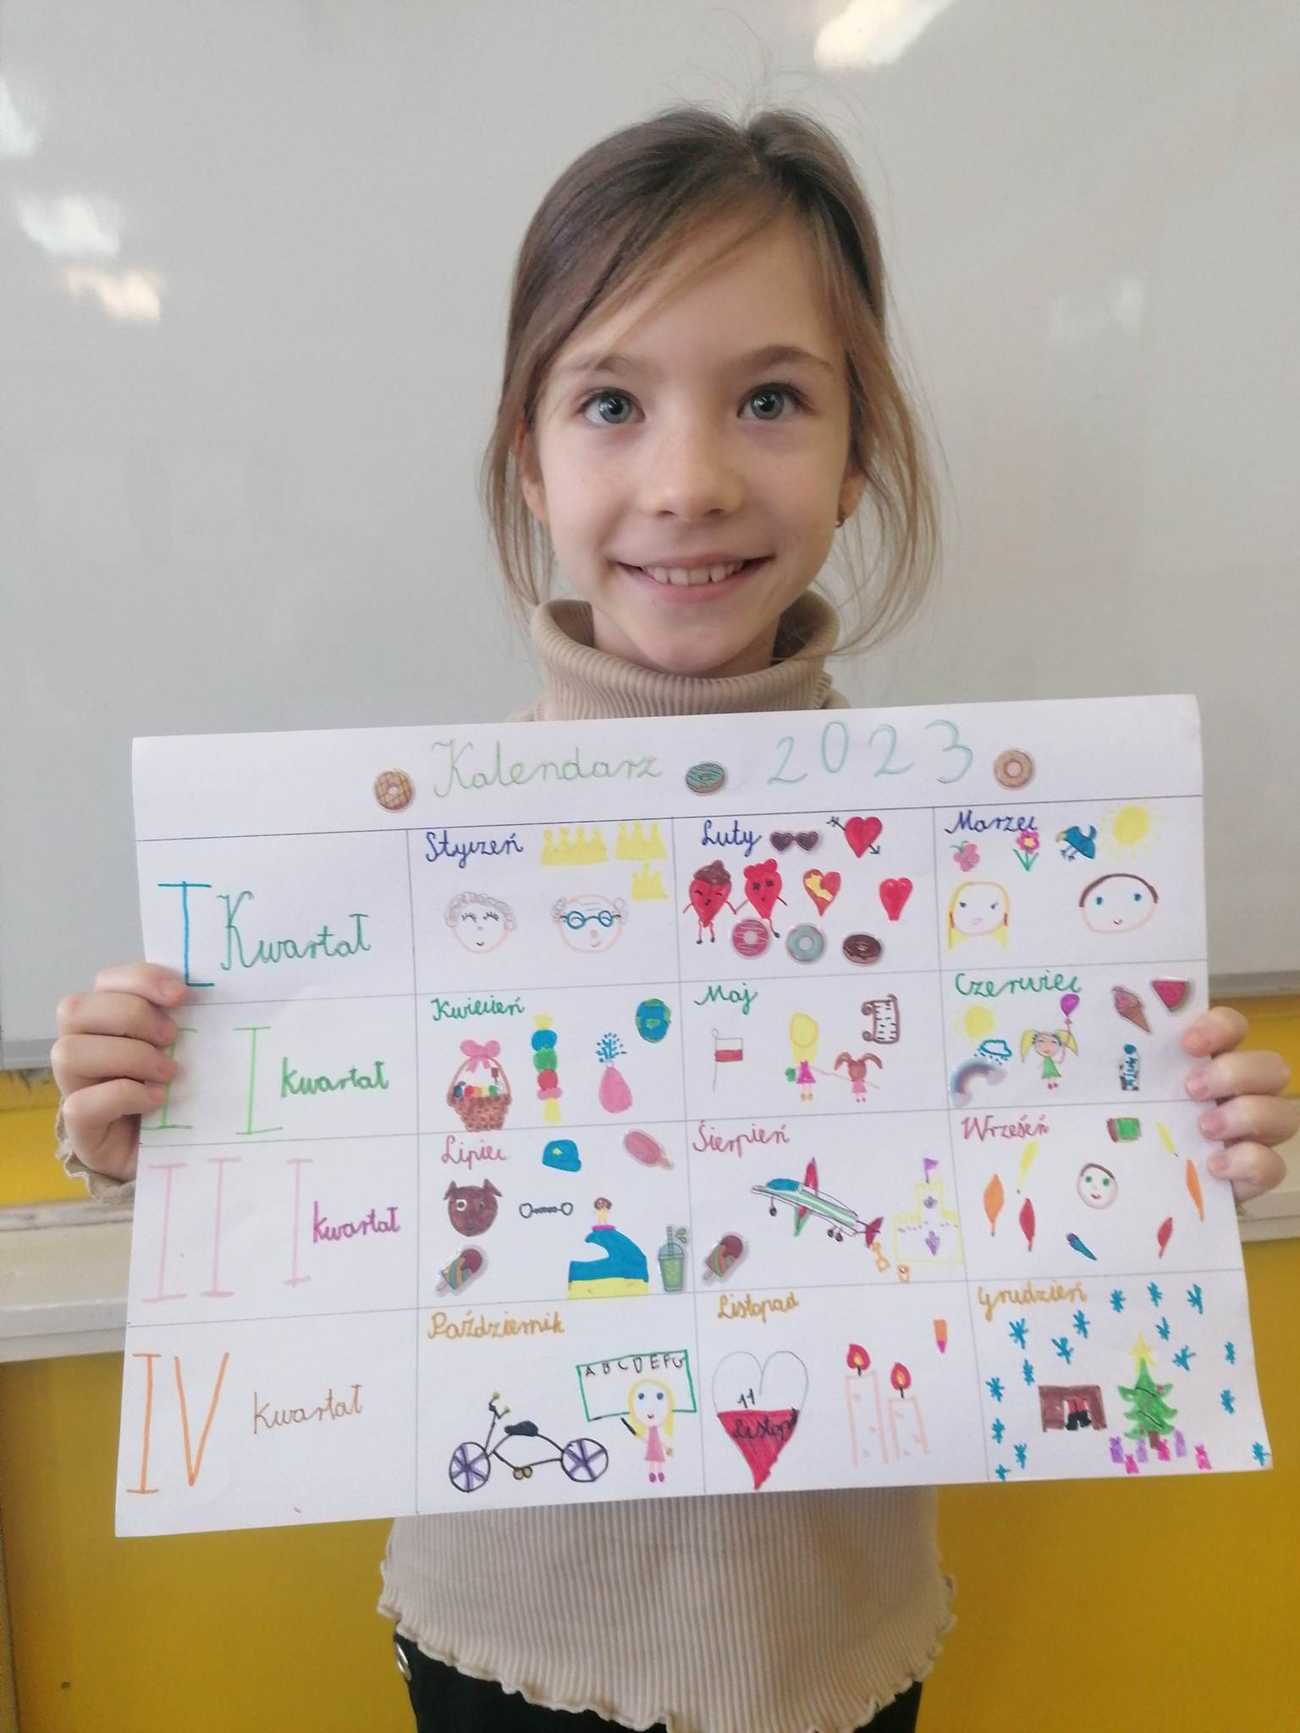 Kalendarz 2023
I Kwartał
Styczeń
Luty
Marzec
II kwartał
Kwiecień
Maj
Czerwiec
III kwartał
Lipiec
Sierpień
Wrzesień
IV kwartał
Październik
ABCDEFG
Listopad
11
Listop
Grudzień